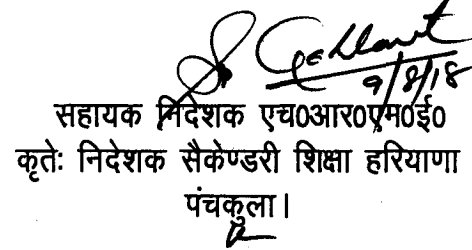 S. Gehlawat
9/8/18
सहायक निदेशक एच0आर0एम0ई0
कृतेः निदेशक सैकेण्डरी शिक्षा हरियाणा
पंचकुला।